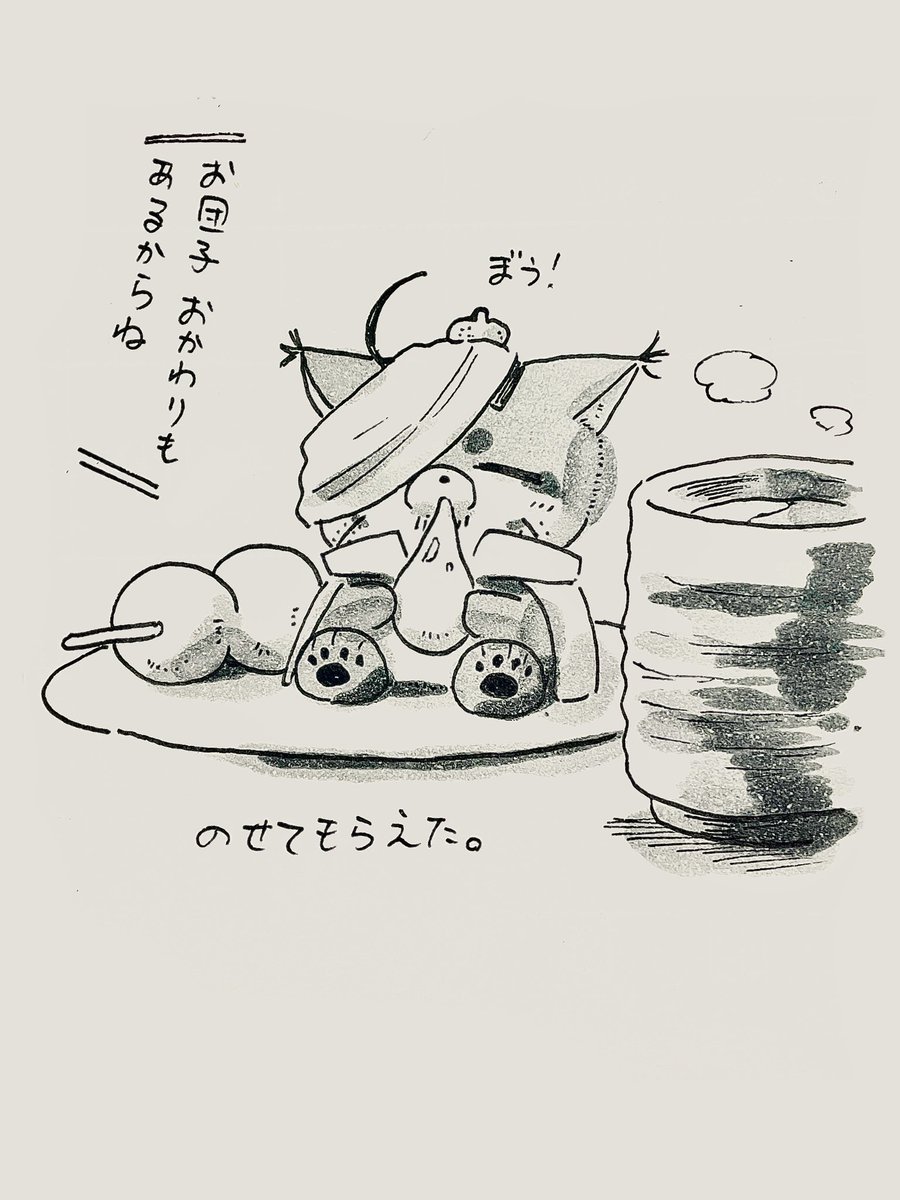 お団子 おかわりも
あるからね
ぼう!
のせてもらえた。